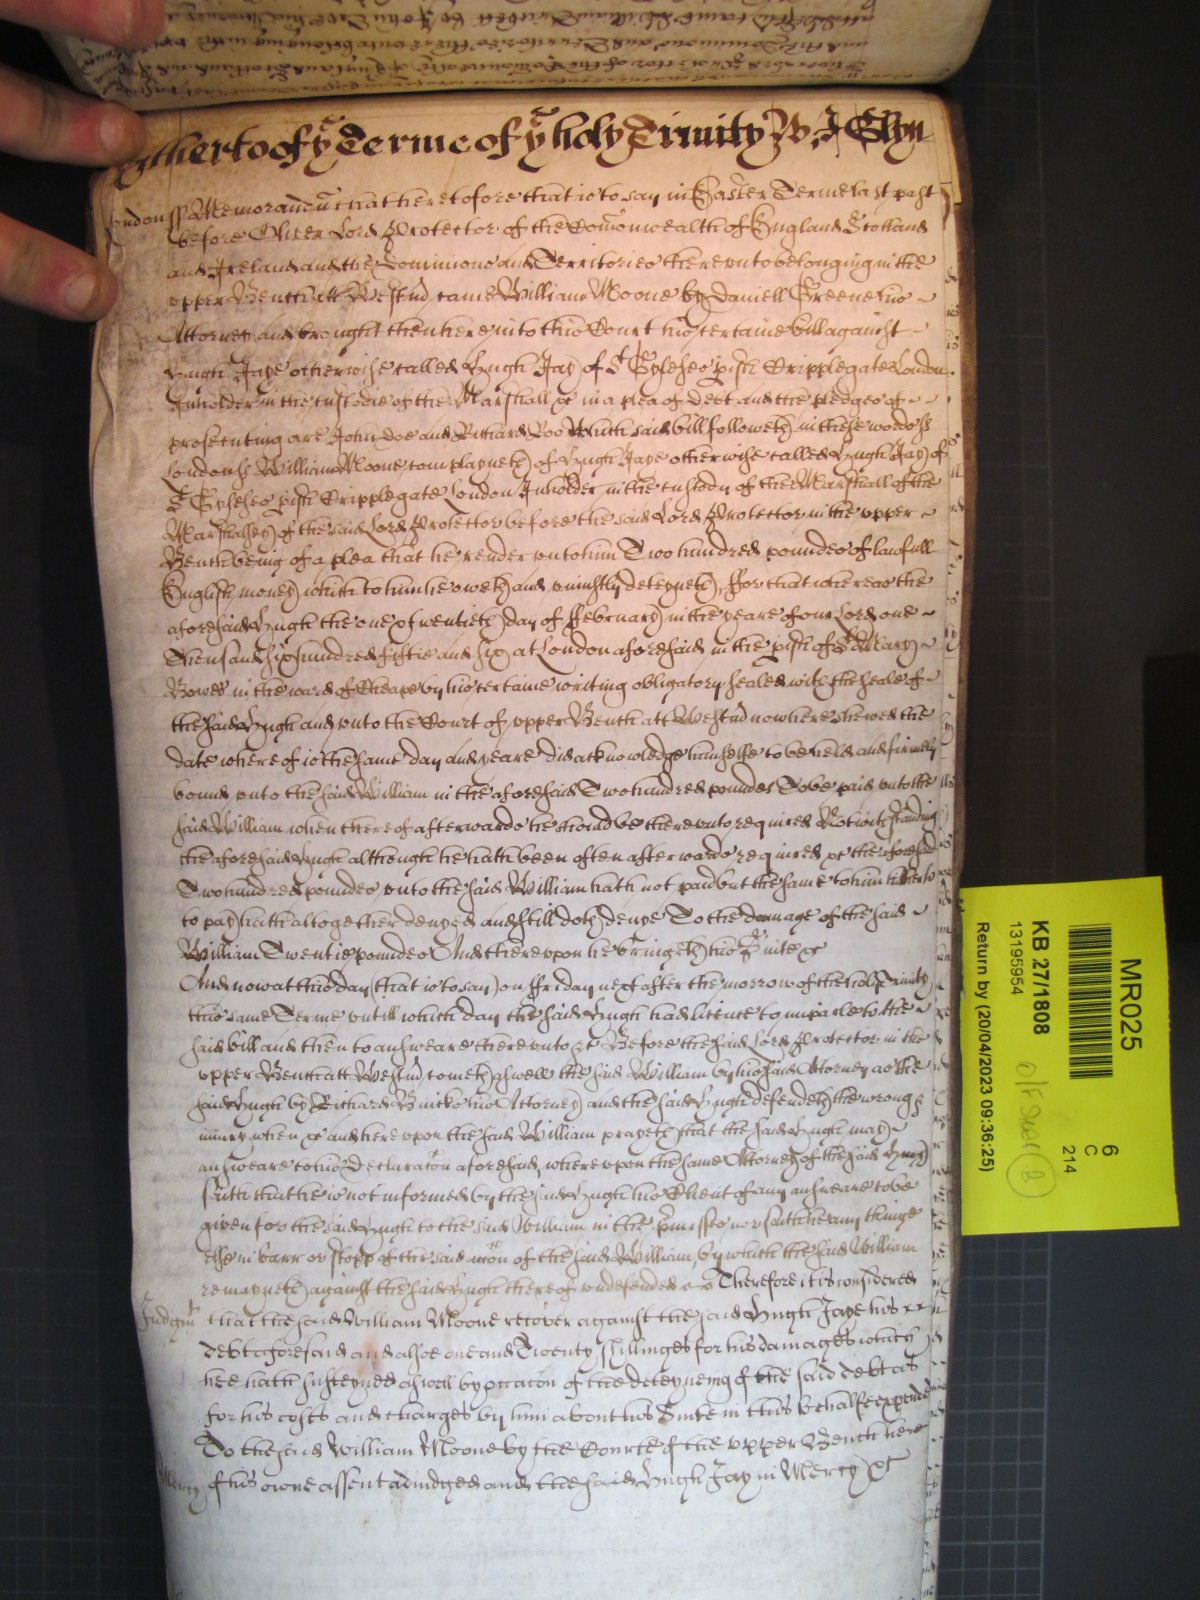 hertoof yͤ Terme of yͤ holy Trinity W. J Glyn
London ss Memorandū that heretofore that is to say in Easter Terme last past
before Oliver Lord Protector of the Comōnwealth of England Scotland
and Ireland and the Dominions and Territories thereunto belonging in the
upper Bench att Westm̄ came William Moone by Daniell Greene his
Attorney and brought then here into this Court his certaine bill against
Hugh Jaye otherwise called Hugh Jay of Sͭ Gyleses pish Cripplegate London
Inholder in the custodie of the Marshall &c in a plea of debt and the pledges of
prosecuting are John Doe and Richard Roo Which said bill followeth in these words ss
London ss William Moone complayneth of Hugh Jaye otherwise called Hugh Jay of
Sͭ Gyleses pish Cripplegate London Inholder in the custody of the Marshall of the
Marshalsey of the said Lord Protector before the said Lord Protector in the upper
Bench being of a plea that he render unto him Two hundred poundes of lawfull
English money which to him he oweth and uniustly deteyneth, ffor that whereas the
aforesaid Hugh the one & twentieth day of ffebruary in the yeare of our Lord one
Thousand six hundred fiftie and six at London aforesaid in the pish of Sͭ Mary
Bowe in the ward of Cheape by his certaine writing obligatory sealed with the seale of
the said Hugh and unto the Court of upper Bench att Westm̄ now here shewed the
date whereof is the same day and yeare did acknowledge himselfe to be held and firmely
bound unto the said William in the aforesaid Two hundred poundes To be paid unto the
said William when thereof afterwards he should be thereunto required Notwithstanding
the aforesaid Hugh although he hath been often afterwards required &c the aforesaid
Two hundred poundes unto the said William hath not paid but the same to him hitherto
to pay hath altogether denyed and still doth denye To the damage of the said
William Twentie poundes And thereupon he bringeth his Suite &c
And now at this day (that is to say) on ffriday next after the morrow of the holy Trinity
this same Terme untill which day the said Hugh had licence to imparle to the
said bill and then to answeare thereunto &c Before the said Lord Protector in the
upper Bench att Westm̄ cometh aswell the said William by his said Attorney as the
said Hugh by Richard his Attorney and the said Hugh defendeth the wrong &
iniury when &c and hereupon the said William prayeth that the said Hugh may
answeare to his Declaracōn aforesaid, whereupon the same Attorney of the said Hugh
saith that he is not informed by the said Hugh his Client of any answeare to be
given for the said Hugh to the said William in the p̄misses nor saith he any thinge
else in barr or stopp of the said accōn of the said William, by which the said William
remayneth against the said Hugh thereof undefended Therefore it is considered
Judgmͭ that the said William Moone recover against the said Hugh Jaye his
debt aforesaid and alsoe one and Twenty shillinges for his damages which
hee hath susteyned aswell by occacōn of the deteyneing of the said debt as
for his costs and charges by him about his Suite in this behalfe expended
To the said William Moone by the Courte of the upper Bench here
Mercy of his owne assent adiudged and the said Hugh Jay in Mercy &c
MR025
6
C
214
KB 27/1808
13195954
Return by (20/04/2023 09:36:25)